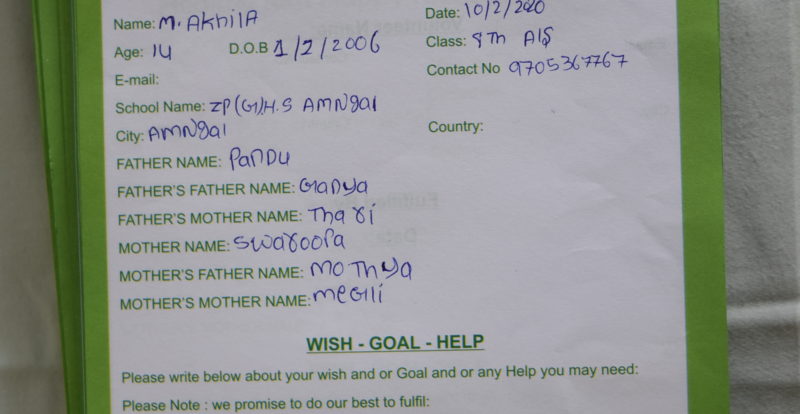 Name: M. AkhilA
Date: 10/2/2020
Age: 14 D.O.B 1/2/2006
Class: 8Th A1S
E-mail:
Contact No 9705367767
School Name: ZP(G)H.S AMNgal
City: AMNgal
Country:
FATHER NAME: PanDu
FATHER'S FATHER NAME: GaNya
FATHER'S MOTHER NAME: Thari
MOTHER NAME: Swaroopa
MOTHER'S FATHER NAME: MoThya
MOTHER'S MOTHER NAME: MeGli
WISH - GOAL - HELP
Please write below about your wish and or Goal and or any Help you may need:
Please Note : we promise to do our best to fulfil: